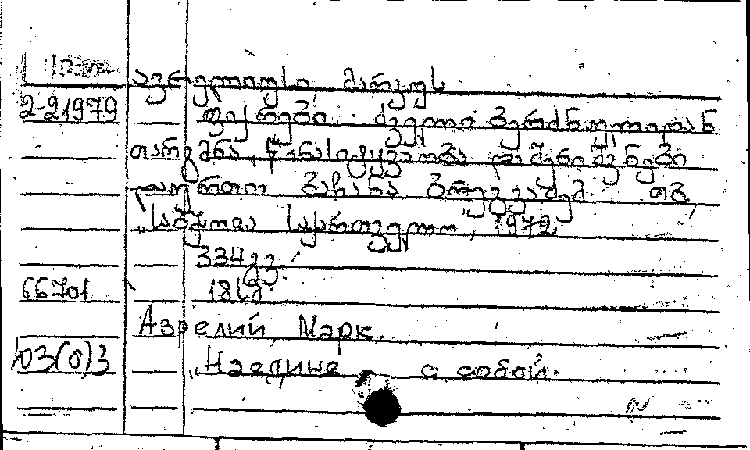 ავრელიუსი მარკუს
2-21979 ფიქრები. ძველი ბერძნულიდან
თარგმნა, წინასიტყვაობა და შენიშვნები
დაურთო ბაჩანა ბრეგვაძემ. თბ.
„საბჭოთა საქართველო", 1972
334 გვ.
66701
Аврелий Марк.
ЮЗ(0)3 „Наедине с собой.